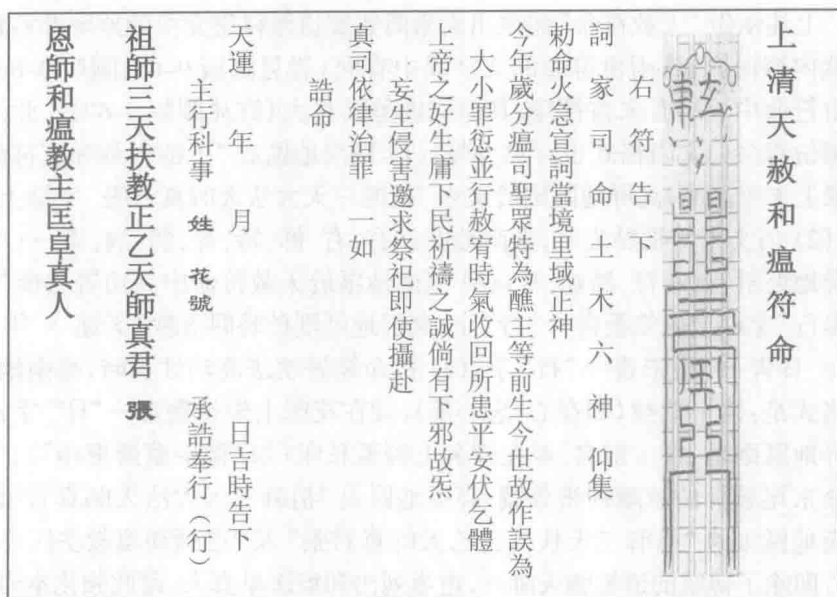 上清天赦和瘟符命
右符告下
詞家司命土木六神仰集
勅命火急宣詞當境里域正神
今年歲分瘟司聖眾特為醮主等前生今世故作誤為
大小罪愆並行赦宥時氣收回所患平安伏乞體
上帝之好生庸下民祈禱之誠倘有下邪故炁
妄生侵害邀求祭祖即使攝赴
真司依律治罪一如
誥命
天運年月日吉時告下
主行科事姓花號承誥奉行(行)
祖師三天扶教正乙天師真君張
恩師和瘟教主匡皇真人